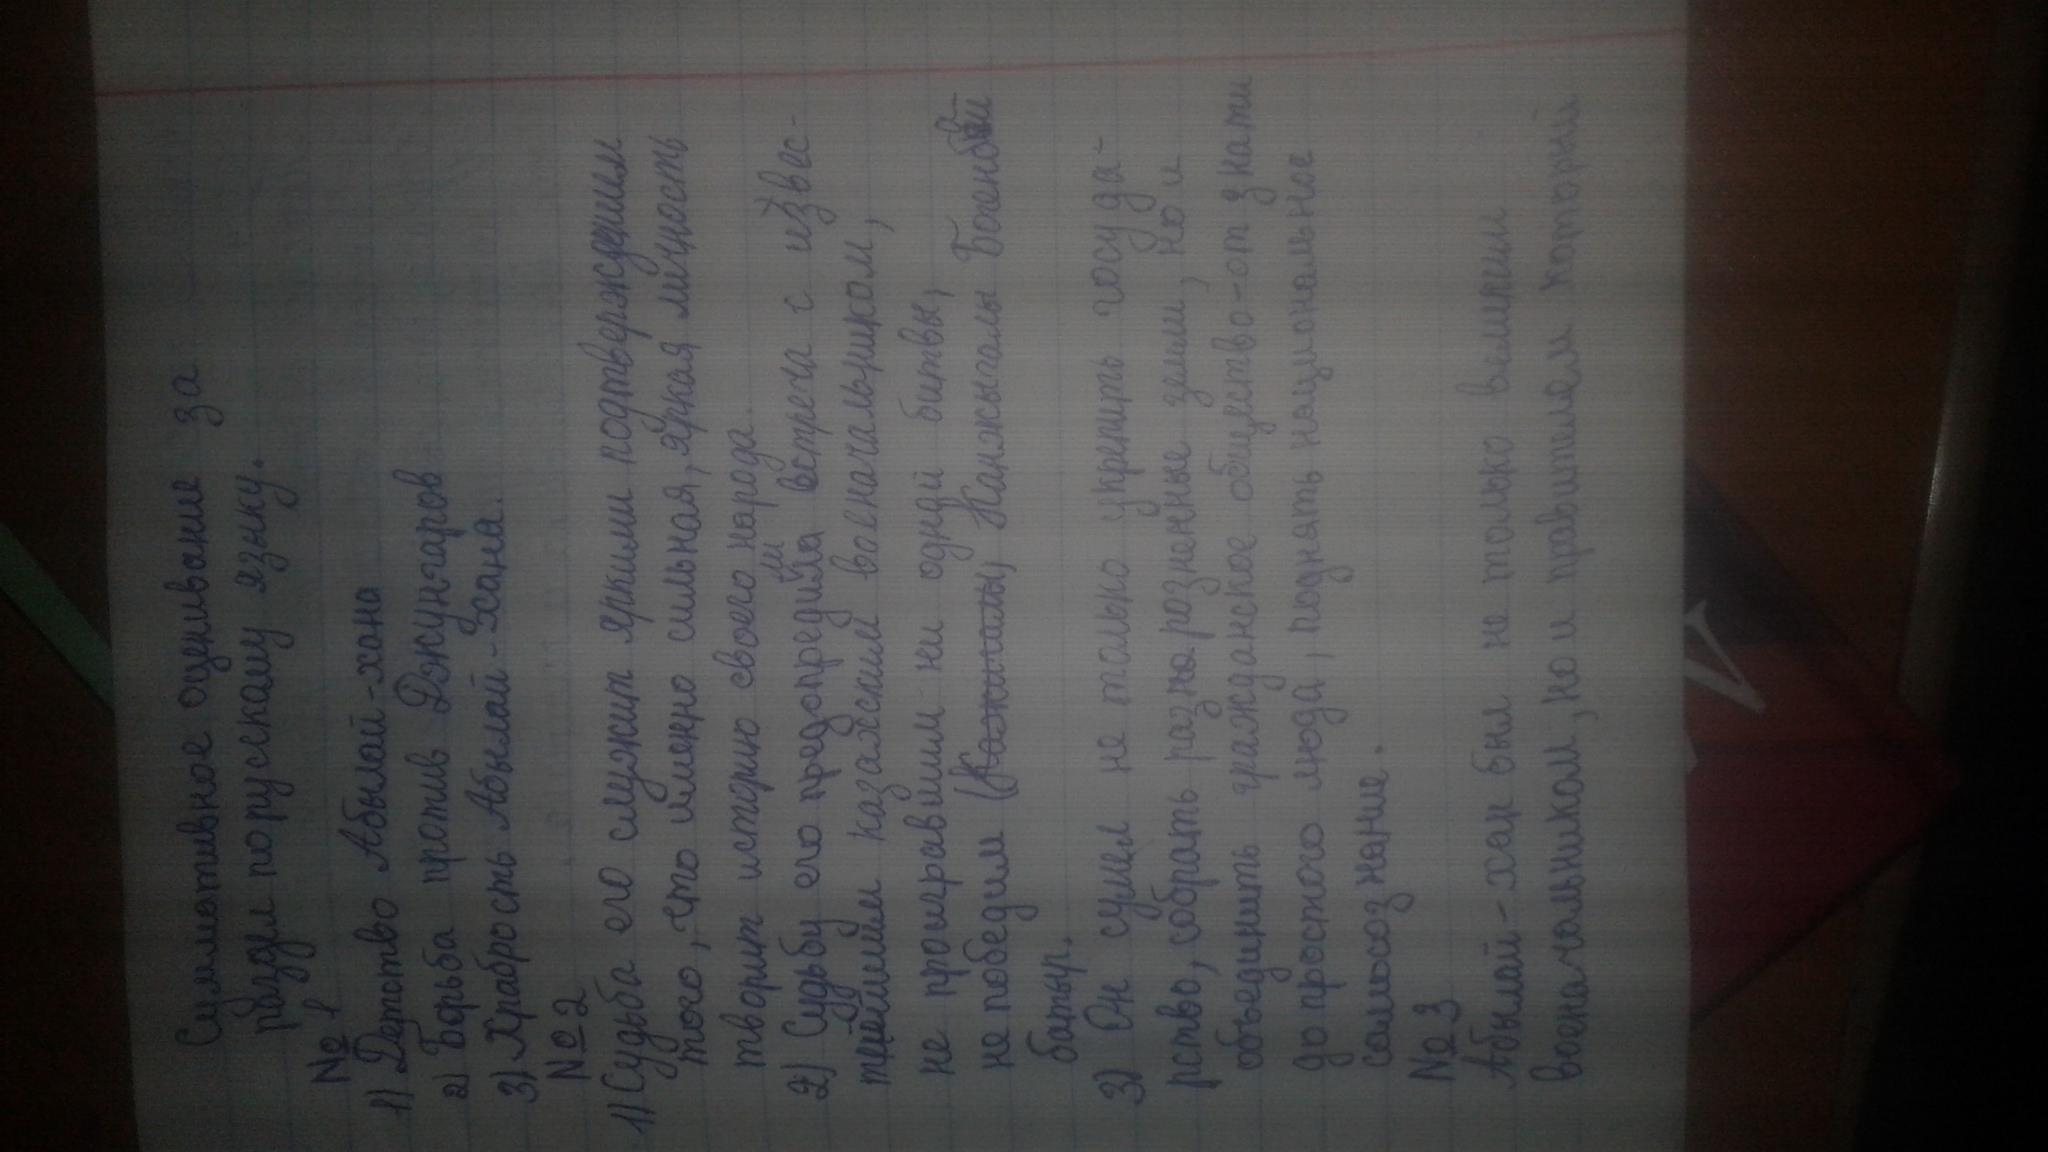 Суммативное оценивание за
раздел по русскому языку.
№ 1
1) Детство Абылай-хана
2) Борьба против Джунгаров
3) Храбрость Абылай-Хана.
№ 2
1) Судьба его служит ярким подтверждением
того, что именно сильная, яркая личность
творит историю своего народа.
2) Судьбу его предопределила встреча с извес-
тнейшим казахским военачальником,
не проигравшим ни одной битвы,
не победим Канжыгалы Богенбай
батыр.
3) Он сумел не только укрепить госуда-
рство, собрать разнорозненные земли, но и
объединить гражданское общество-от знати
до простого люда, поднять национальное
самосознание.
№ 3
Абылай-хан был не только великим
военачальником, но и правителем который
V